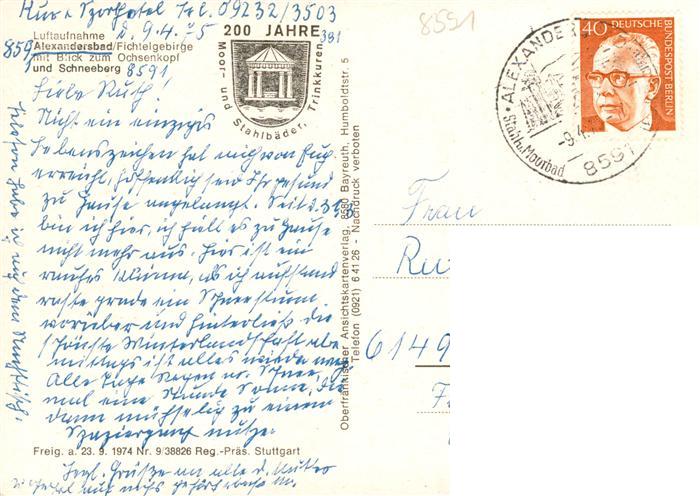 Kur u Sporthotel Tel. 09232/3503
d. 9.4.75
Luftaufnahme
8591 Alexandersbad/Fichtelgebirge
mit Blick zum Ochsenkopf
und Schneeberg 8591
200 JAHRE
Moor- und Stahlbäder, Trinkkuren
381
8591
Liebe Ruth!
Nicht ein einziges
Lebenszeichen hat mich von
erreicht, hoffentlich seid Ihr gesund
zu Hause angelangt. Seit
bin ich hier, ich hielt es zu Hause
nicht mehr aus. Hier ist ein
rauhes Klima, als ich aufstand
raste grade ein Schneesturm
vorüber und hinterließ die
schönste Winterlandschaft aber
mittags ist alles wieder
Alle Tage Regen od. Schnee,
mal eine Stunde Sonne, die
dann mühselig zu einem
Spaziergang nutze.
Freig. a. 23. 9. 1974 Nr. 9/38826 Reg.-Präs. Stuttgart
Herzl. Grüße an alle d. Mutter
Telefon habe ich auf dem Nachttisch.
Oberfränkischer Ansichtskartenverlag, 8580 Bayreuth, Humboldtstr. 5
Telefon (0921) 6 41 26 - Nachdruck verboten
DEUTSCHE BUNDESPOST BERLIN
40
ALEXANDERSBAD
Staatl. Moorbad
8591
Frau
6149